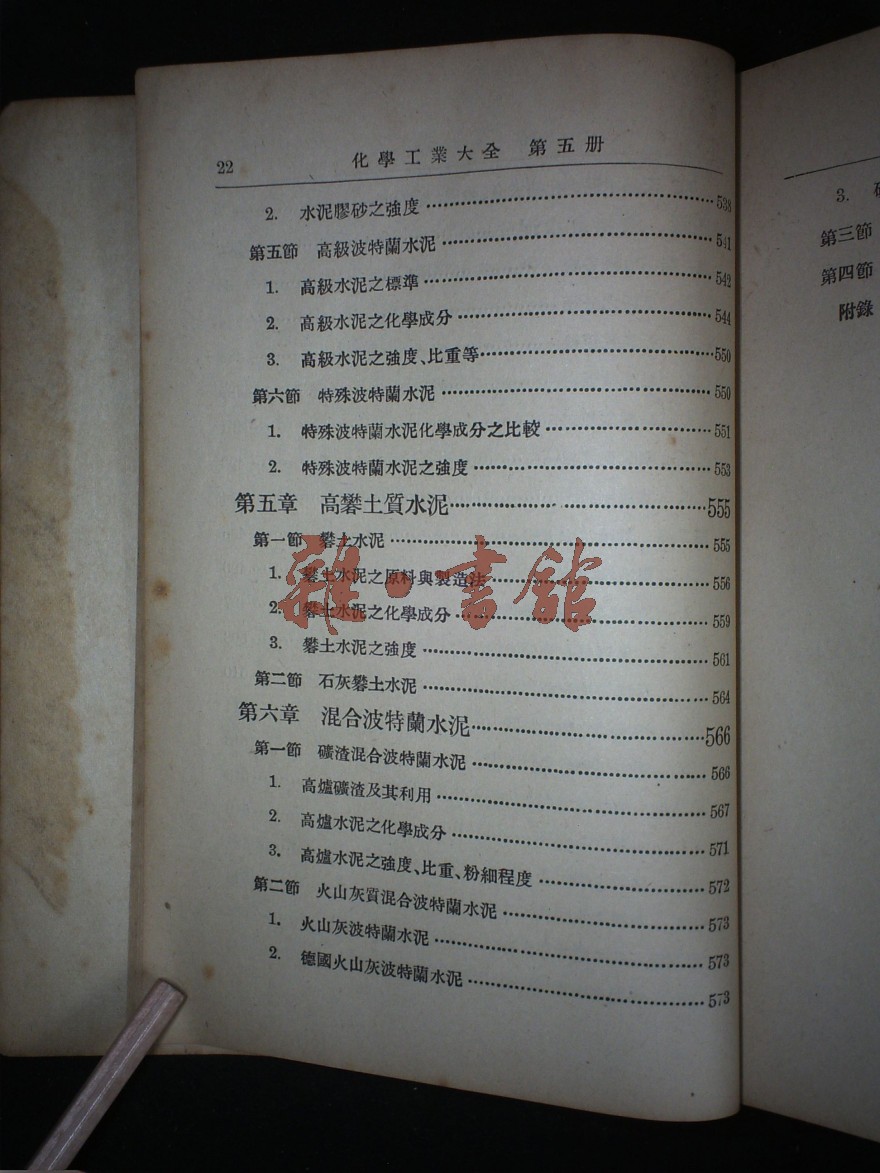 22 化學工業大全 第五册
2. 水泥膠砂之強度 538
第五節 高級波特蘭水泥 541
1. 高級水泥之標準 542
2. 高級水泥之化學成分 544
3. 高級水泥之強度、比重等 550
第六節 特殊波特蘭水泥 550
1. 特殊波特蘭水泥化學成分之比較 551
2. 特殊波特蘭水泥之強度 553
第五章 高礬土質水泥 555
第一節 礬土水泥 555
1. 礬土水泥之原料與製造法 556
2. 礬土水泥之化學成分 559
3. 礬土水泥之強度 561
第二節 石灰礬土水泥 564
第六章 混合波特蘭水泥 566
第一節 礦渣混合波特蘭水泥 566
1. 高爐礦渣及其利用 567
2. 高爐水泥之化學成分 571
3. 高爐水泥之強度、比重、粉細程度 572
第二節 火山灰質混合波特蘭水泥 573
1. 火山灰波特蘭水泥 573
2. 德國火山灰波特蘭水泥 573
雜·書館
3.
第三節
第四節
附錄